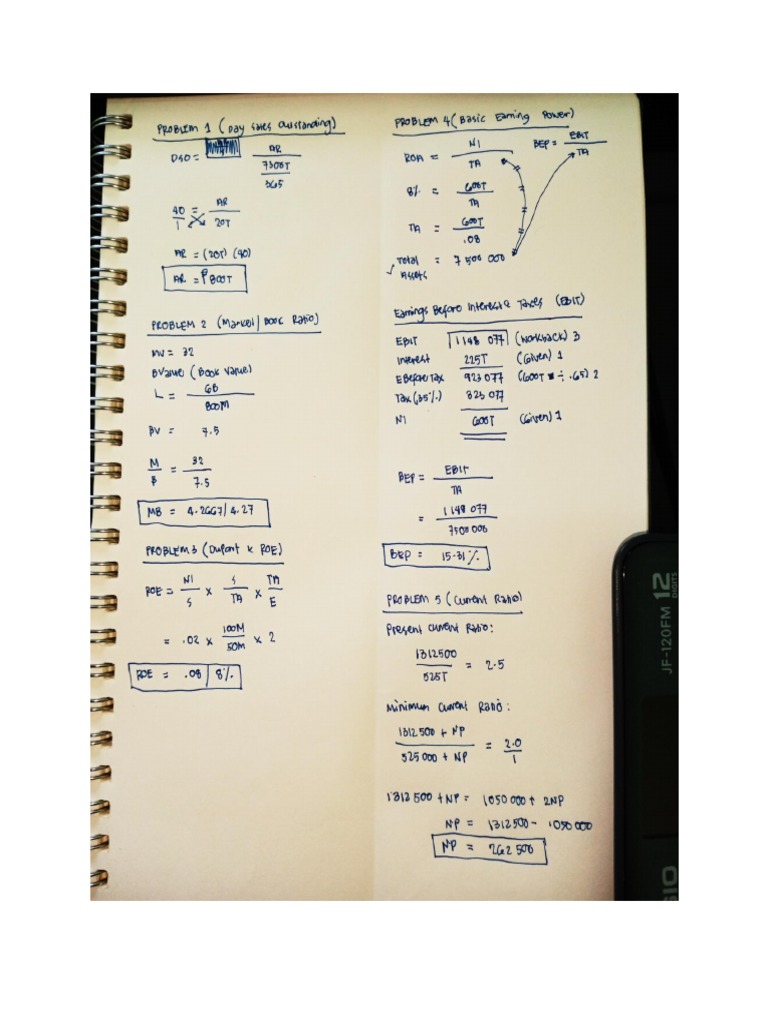 PROBLEM 1 (Day Sales Outstanding)
DSO = AR
7300T
365
40 = AR
1 20T
AR = (20T) (40)
AR = ₱800T
PROBLEM 2 (Market/Book Ratio)
MV = 32
BValue (Book Value)
L = 6B
800M
BV = 7.5
M = 32
B 7.5
MB = 4.2667/4.27
PROBLEM 3 (Dupont & ROE)
ROE = NI x S x TA
S TA E
= .02 x 100M x 2
50M
ROE = .08 / 8%
PROBLEM 4 (Basic Earning Power)
ROA = NI BEP = EBIT
TA TA
8% = 600T
TA
TA = 600T
.08
Total = 7 500 000
Assets
Earnings Before Interest & Taxes (EBIT)
EBIT 1 148 077 (Workback) 3
Interest 225T (Given) 1
EBeforeTax 923 077 (600T ÷ .65) 2
Tax (35%) 323 077
NI 600T (Given) 1
BEP = EBIT
TA
= 1 148 077
7500 000
BEP = 15.31%
PROBLEM 5 (Current Ratio)
Present Current Ratio:
1312500 = 2.5
525T
Minimum Current Ratio:
1312 500 + NP = 2.0
525 000 + NP 1
1312 500 + NP = 1050 000 + 2NP
NP = 1312 500 - 1050 000
NP = 262 500
JF-120FM 12
DIGITS